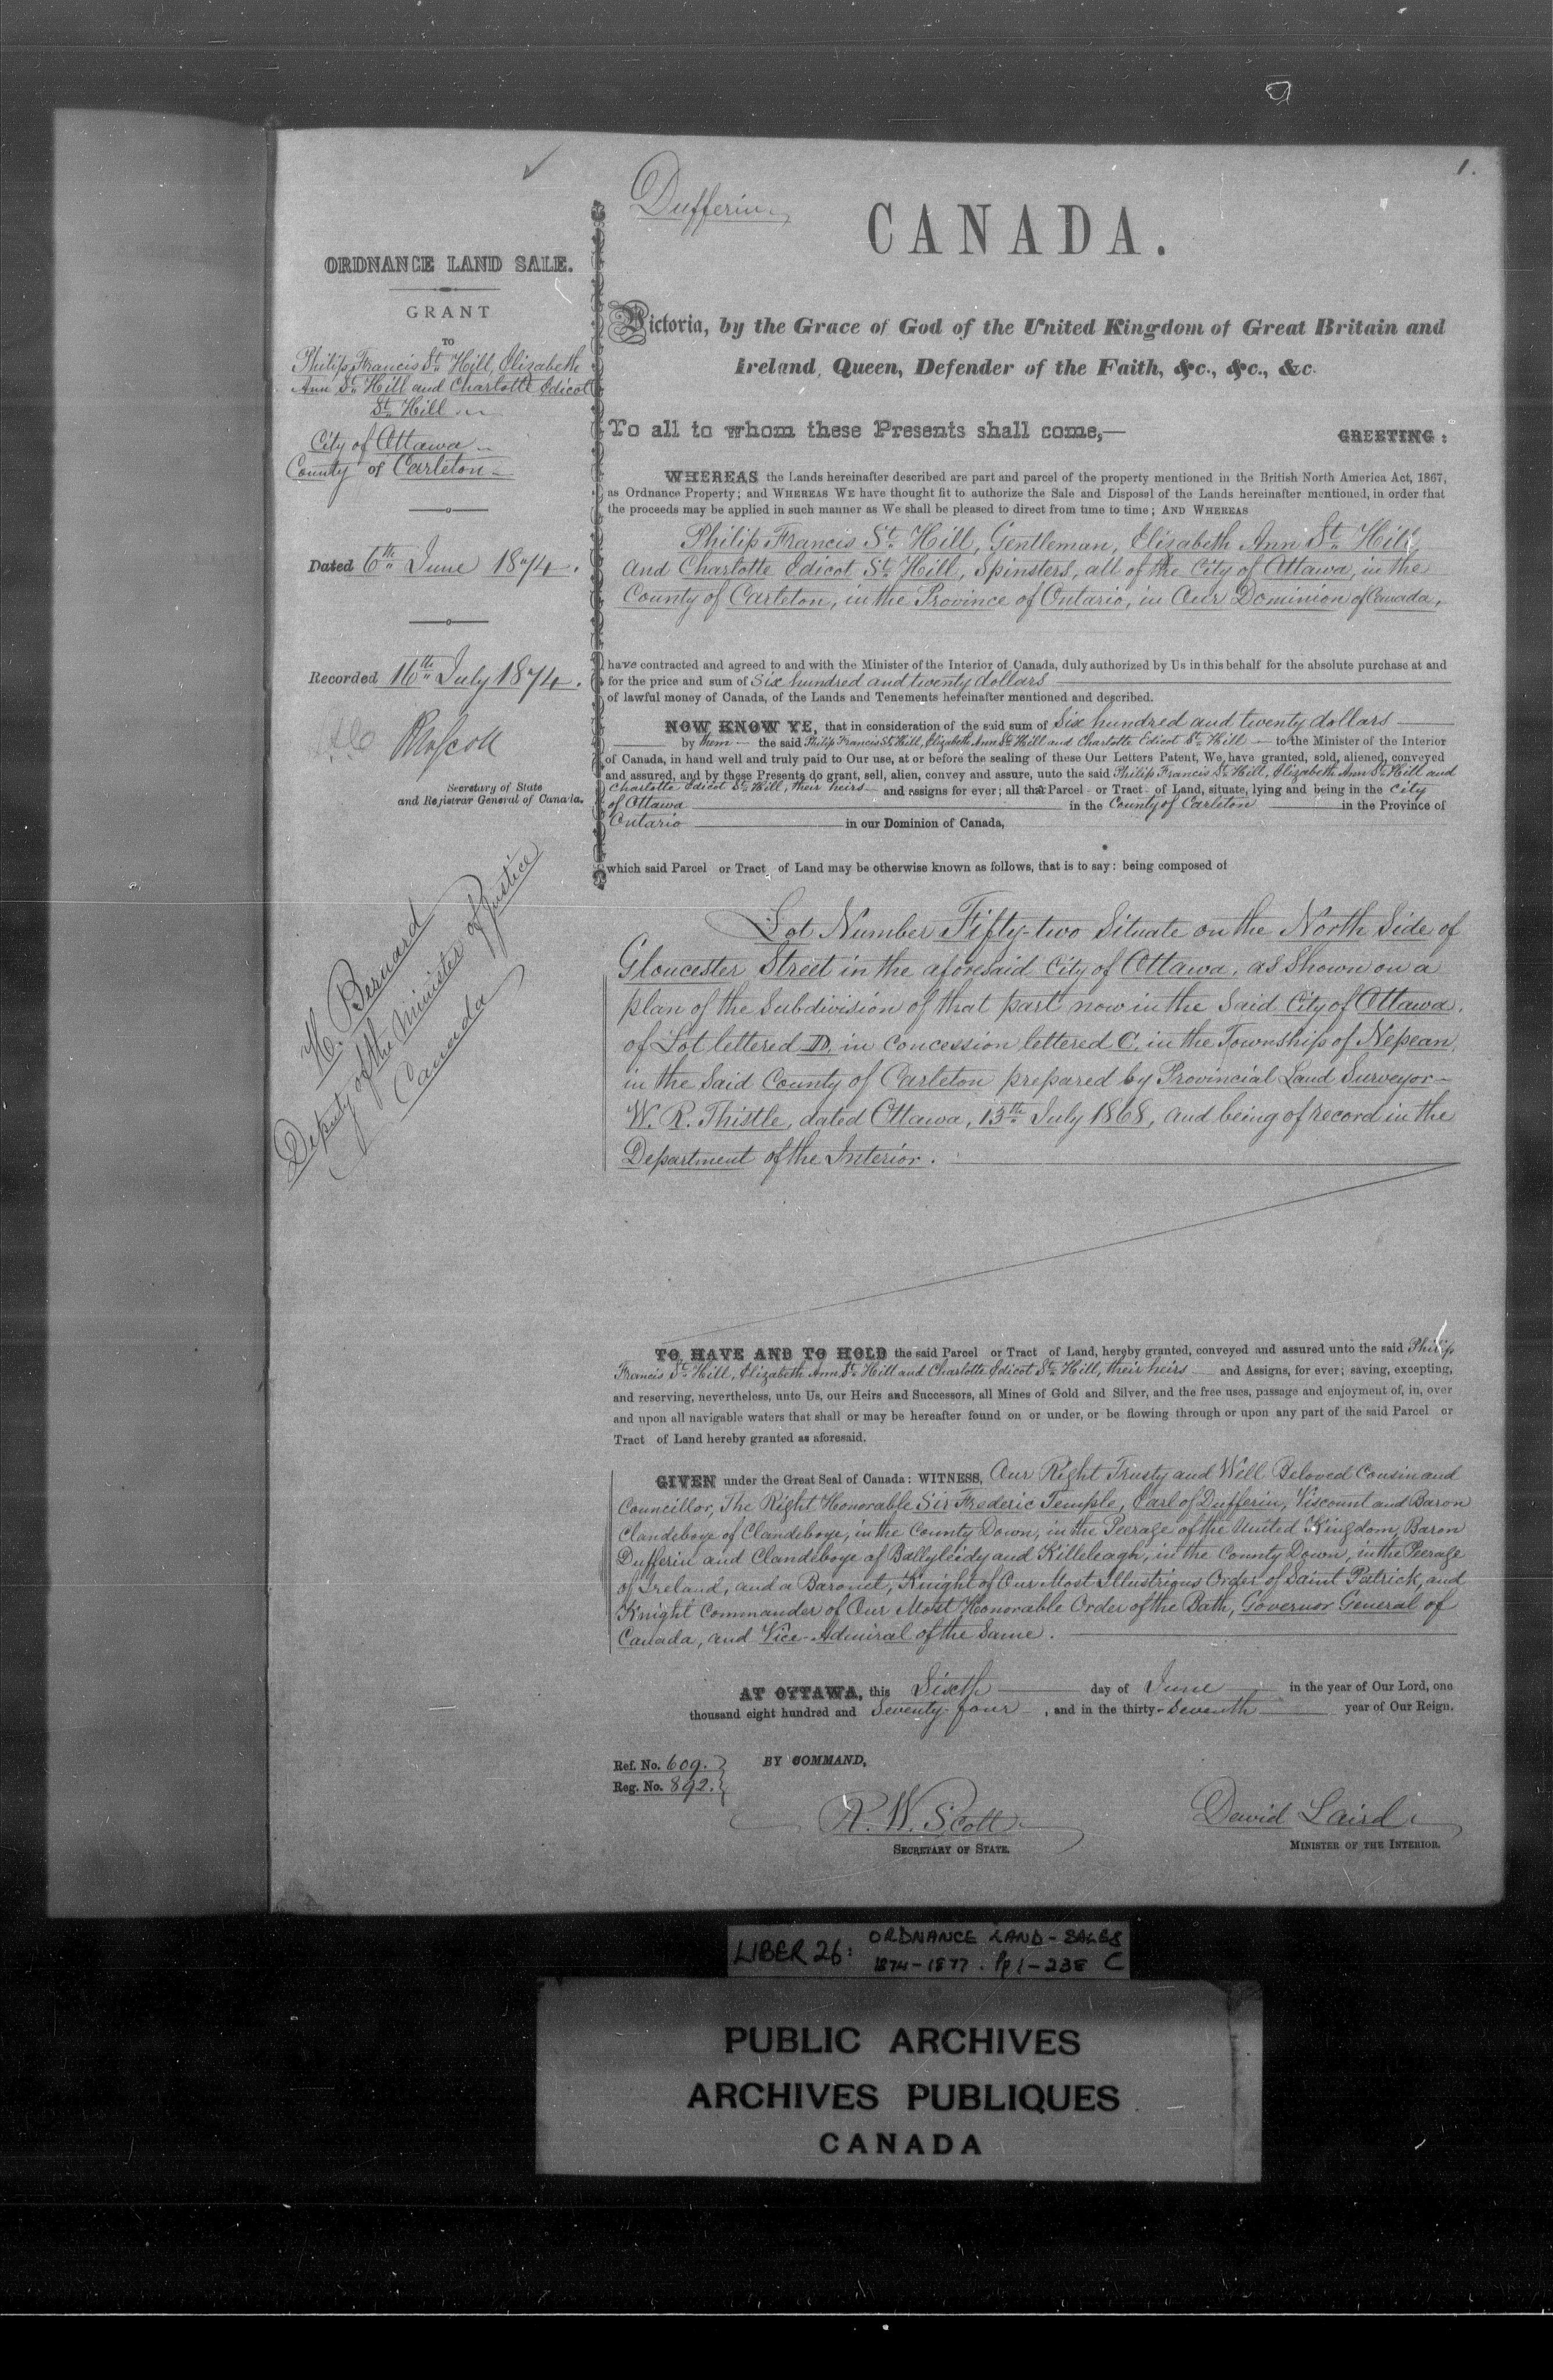 1.
Dufferin
CANADA.
ORDNANCE LAND SALE.
GRANT
TO
Philip Francis St. Hill, Elizabeth
Ann St. Hill and Charlotte Edicot
St. Hill
City of Ottawa
County of Carleton
Dated 6th June 1874.
Recorded 16th July 1874.
RWScott
Secretary of State
and Registrar General of Canada.
H. Bernard
Deputy of the Minister of Justice
Canada
Victoria, by the Grace of God of the United Kingdom of Great Britain and
Ireland, Queen, Defender of the Faith, &c., &c., &c.
To all to whom these Presents shall come,— GREETING:
WHEREAS the Lands hereinafter described are part and parcel of the property mentioned in the British North America Act, 1867,
as Ordnance Property; and WHEREAS WE have thought fit to authorize the Sale and Disposal of the Lands hereinafter mentioned, in order that
the proceeds may be applied in such manner as We shall be pleased to direct from time to time; AND WHEREAS
Philip Francis St. Hill, Gentleman, Elizabeth Ann St. Hill,
and Charlotte Edicot St. Hill, Spinsters, all of the City of Ottawa, in the
County of Carleton, in the Province of Ontario, in Our Dominion of Canada,
have contracted and agreed to and with the Minister of the Interior of Canada, duly authorized by Us in this behalf for the absolute purchase at and
for the price and sum of Six hundred and twenty dollars
of lawful money of Canada, of the Lands and Tenements hereinafter mentioned and described.
NOW KNOW YE, that in consideration of the said sum of Six hundred and twenty dollars
by them the said Philip Francis St. Hill, Elizabeth Ann St. Hill and Charlotte Edicot St. Hill to the Minister of the Interior
of Canada, in hand well and truly paid to Our use, at or before the sealing of these Our Letters Patent, We have granted, sold, aliened, conveyed
and assured, and by these Presents do grant, sell, alien, convey and assure, unto the said Philip Francis St. Hill, Elizabeth Ann St. Hill and
Charlotte Edicot St. Hill, their heirs and assigns for ever; all that Parcel or Tract of Land, situate, lying and being in the City
of Ottawa in the County of Carleton in the Province of
Ontario in our Dominion of Canada,
which said Parcel or Tract of Land may be otherwise known as follows, that is to say: being composed of
Lot Number Fifty-two Situate on the North Side of
Gloucester Street in the aforesaid City of Ottawa, as Shown on a
plan of the Subdivision of that part now in the Said City of Ottawa,
of Lot lettered D, in Concession lettered C, in the Township of Nepean,
in the Said County of Carleton prepared by Provincial Land Surveyor
W. R. Thistle, dated Ottawa, 13th July 1868, and being of record in the
Department of the Interior.
TO HAVE AND TO HOLD the said Parcel or Tract of Land, hereby granted, conveyed and assured unto the said Philip
Francis St. Hill, Elizabeth Ann St. Hill and Charlotte Edicot St. Hill, their heirs and Assigns, for ever; saving, excepting,
and reserving, nevertheless, unto Us, our Heirs and Successors, all Mines of Gold and Silver, and the free uses, passage and enjoyment of, in, over
and upon all navigable waters that shall or may be hereafter found on or under, or be flowing through or upon any part of the said Parcel or
Tract of Land hereby granted as aforesaid.
GIVEN under the Great Seal of Canada: WITNESS, Our Right Trusty and Well Beloved Cousin and
Councillor, The Right Honorable Sir Frederic Temple, Earl of Dufferin, Viscount and Baron
Clandeboye of Clandeboye, in the County Down, in the Peerage of the United Kingdom, Baron
Dufferin and Clandeboye of Ballyleidy and Killeleagh, in the County Down, in the Peerage
of Ireland, and a Baronet, Knight of Our Most Illustrious Order of Saint Patrick, and
Knight Commander of Our Most Honorable Order of the Bath, Governor General of
Canada, and Vice-Admiral of the Same.
AT OTTAWA, this Sixth day of June in the year of Our Lord, one
thousand eight hundred and Seventy-four, and in the thirty-Seventh year of Our Reign.
Ref. No. 609.
Reg. No. 892.
BY COMMAND,
R. W. Scott
SECRETARY OF STATE.
David Laird
MINISTER OF THE INTERIOR.
LIBER 26: ORDNANCE LAND-SALES
1874-1877. Pp 1-238 C
PUBLIC ARCHIVES
ARCHIVES PUBLIQUES
CANADA